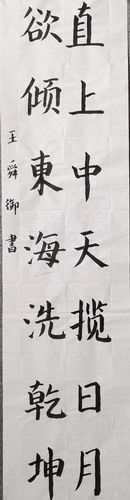 直上中天揽日月
欲倾東海洗乾坤
王舜御書